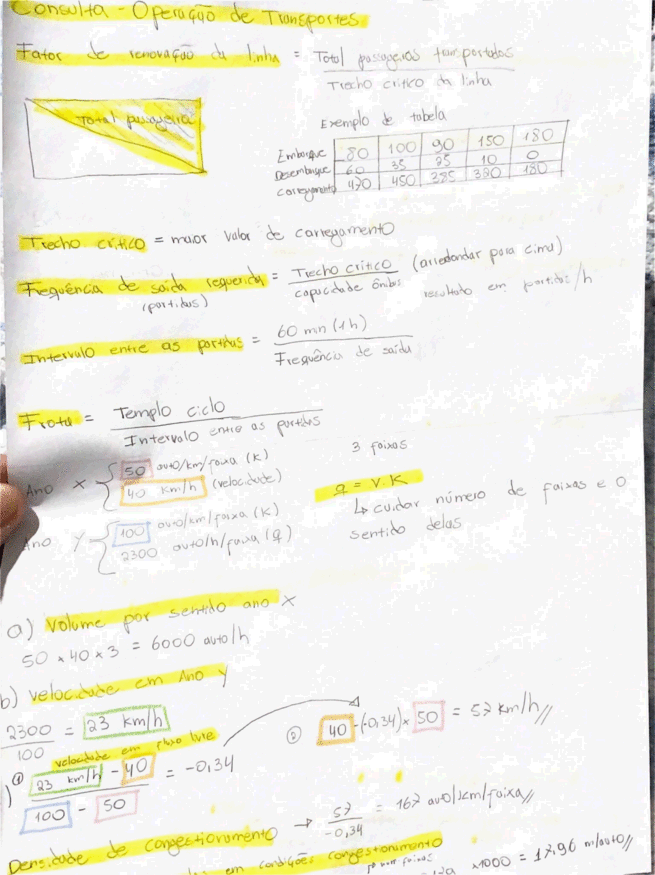 Consulta - Operação de Transportes
Fator de renovação da linha = Total passageiros transportados
Trecho crítico da linha
Total passageiro
Exemplo de tabela
Embarque 80 100 90 150 180
Desembarque 60 35 35 10 0
Carregamento 470 450 385 330 180
Trecho crítico = maior valor de carregamento
Frequência de saída requerida = Trecho crítico (arredondar para cima)
(partidas) capacidade ônibus resultado em partidas/h
Intervalo entre as partidas = 60 mn (1h)
Frequência de saída
Frota = Templo ciclo
Intervalo entre as partidas
3 faixas
Ano X 50 auto/km/faixa (K)
40 km/h (velocidade)
q = V.K
↳ cuidar número de faixas e o
sentido delas
Ano Y 100 auto/km/faixa (K)
2300 auto/h/faixa (q)
a) Volume por sentido ano X
50 x 40 x 3 = 6000 auto/h
b) Velocidade em Ano Y
2300 = 23 km/h
100
velocidade em fluxo livre
① 23 km/h - 40 = -0,34
100 - 50
② 40 -(-0,34)x 50 = 57 km/h//
Densidade de congestionamento → 57 = 167 auto/km/faixa//
-0,34
em condições congestionamento
x1000 = 17,96 m/auto//